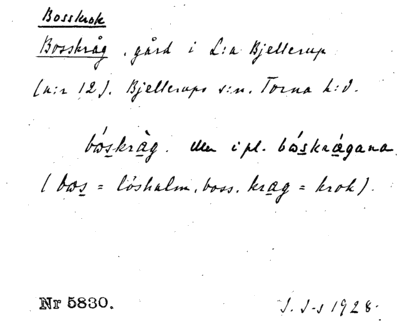 Bosskrok
Bosskråg, gård i L:a Bjellerup
(n:r 12). Bjellerups s:n. Torna h:d.
bósskràg. eller i pl. bósskrágana
(boss = löshalm, boss. krag = krok).
Nr 5830.
J. J-s 1928.